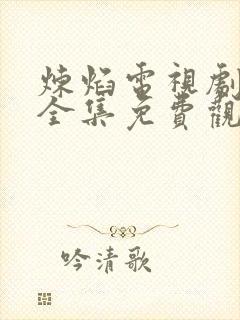 煉焰電視劇
全集免費觀
吟清歌